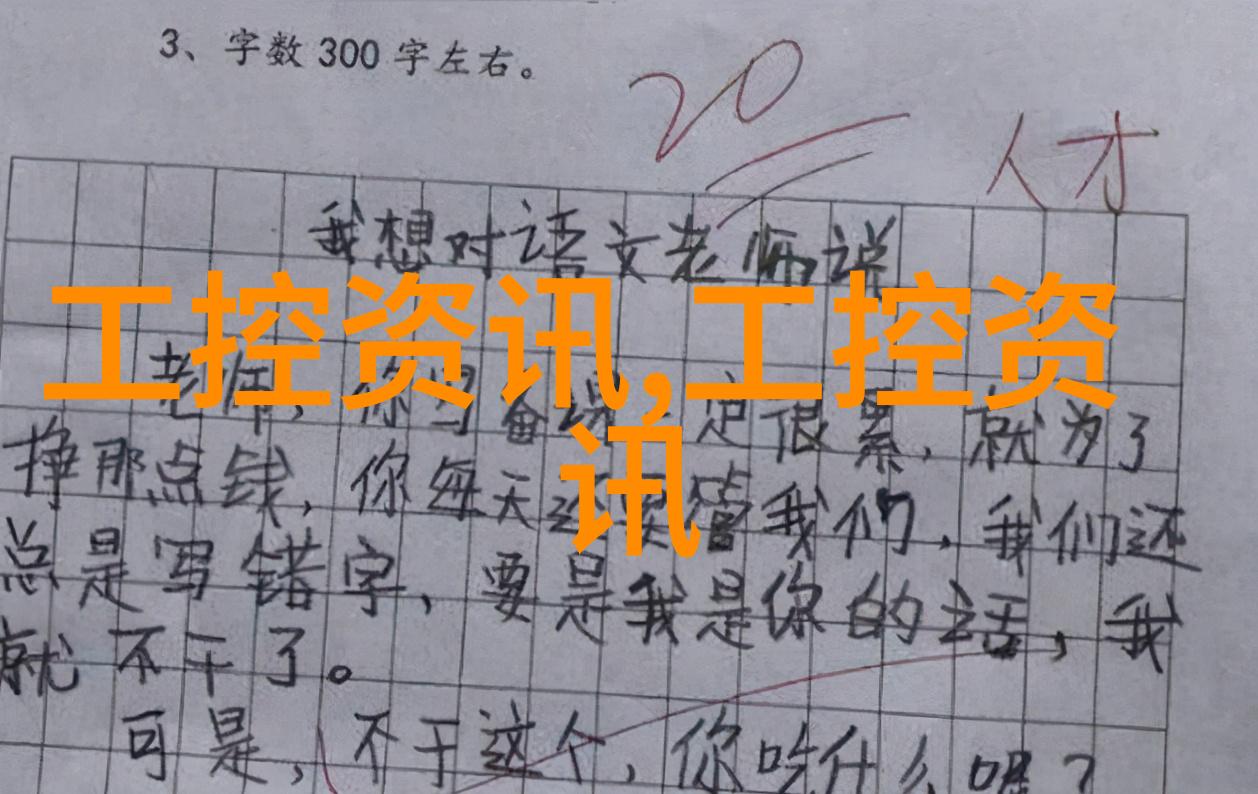 3、字数 300 字左右。
20
人才
我想对语文老师说
工控资讯,工控资
讯
老师，你写备课一定很累，就为了
挣那点钱，你每天还要管我们，我们还
总是写错字，要是我是你的话，我
就不干了。
可是，不干这个，你吃什么呢？